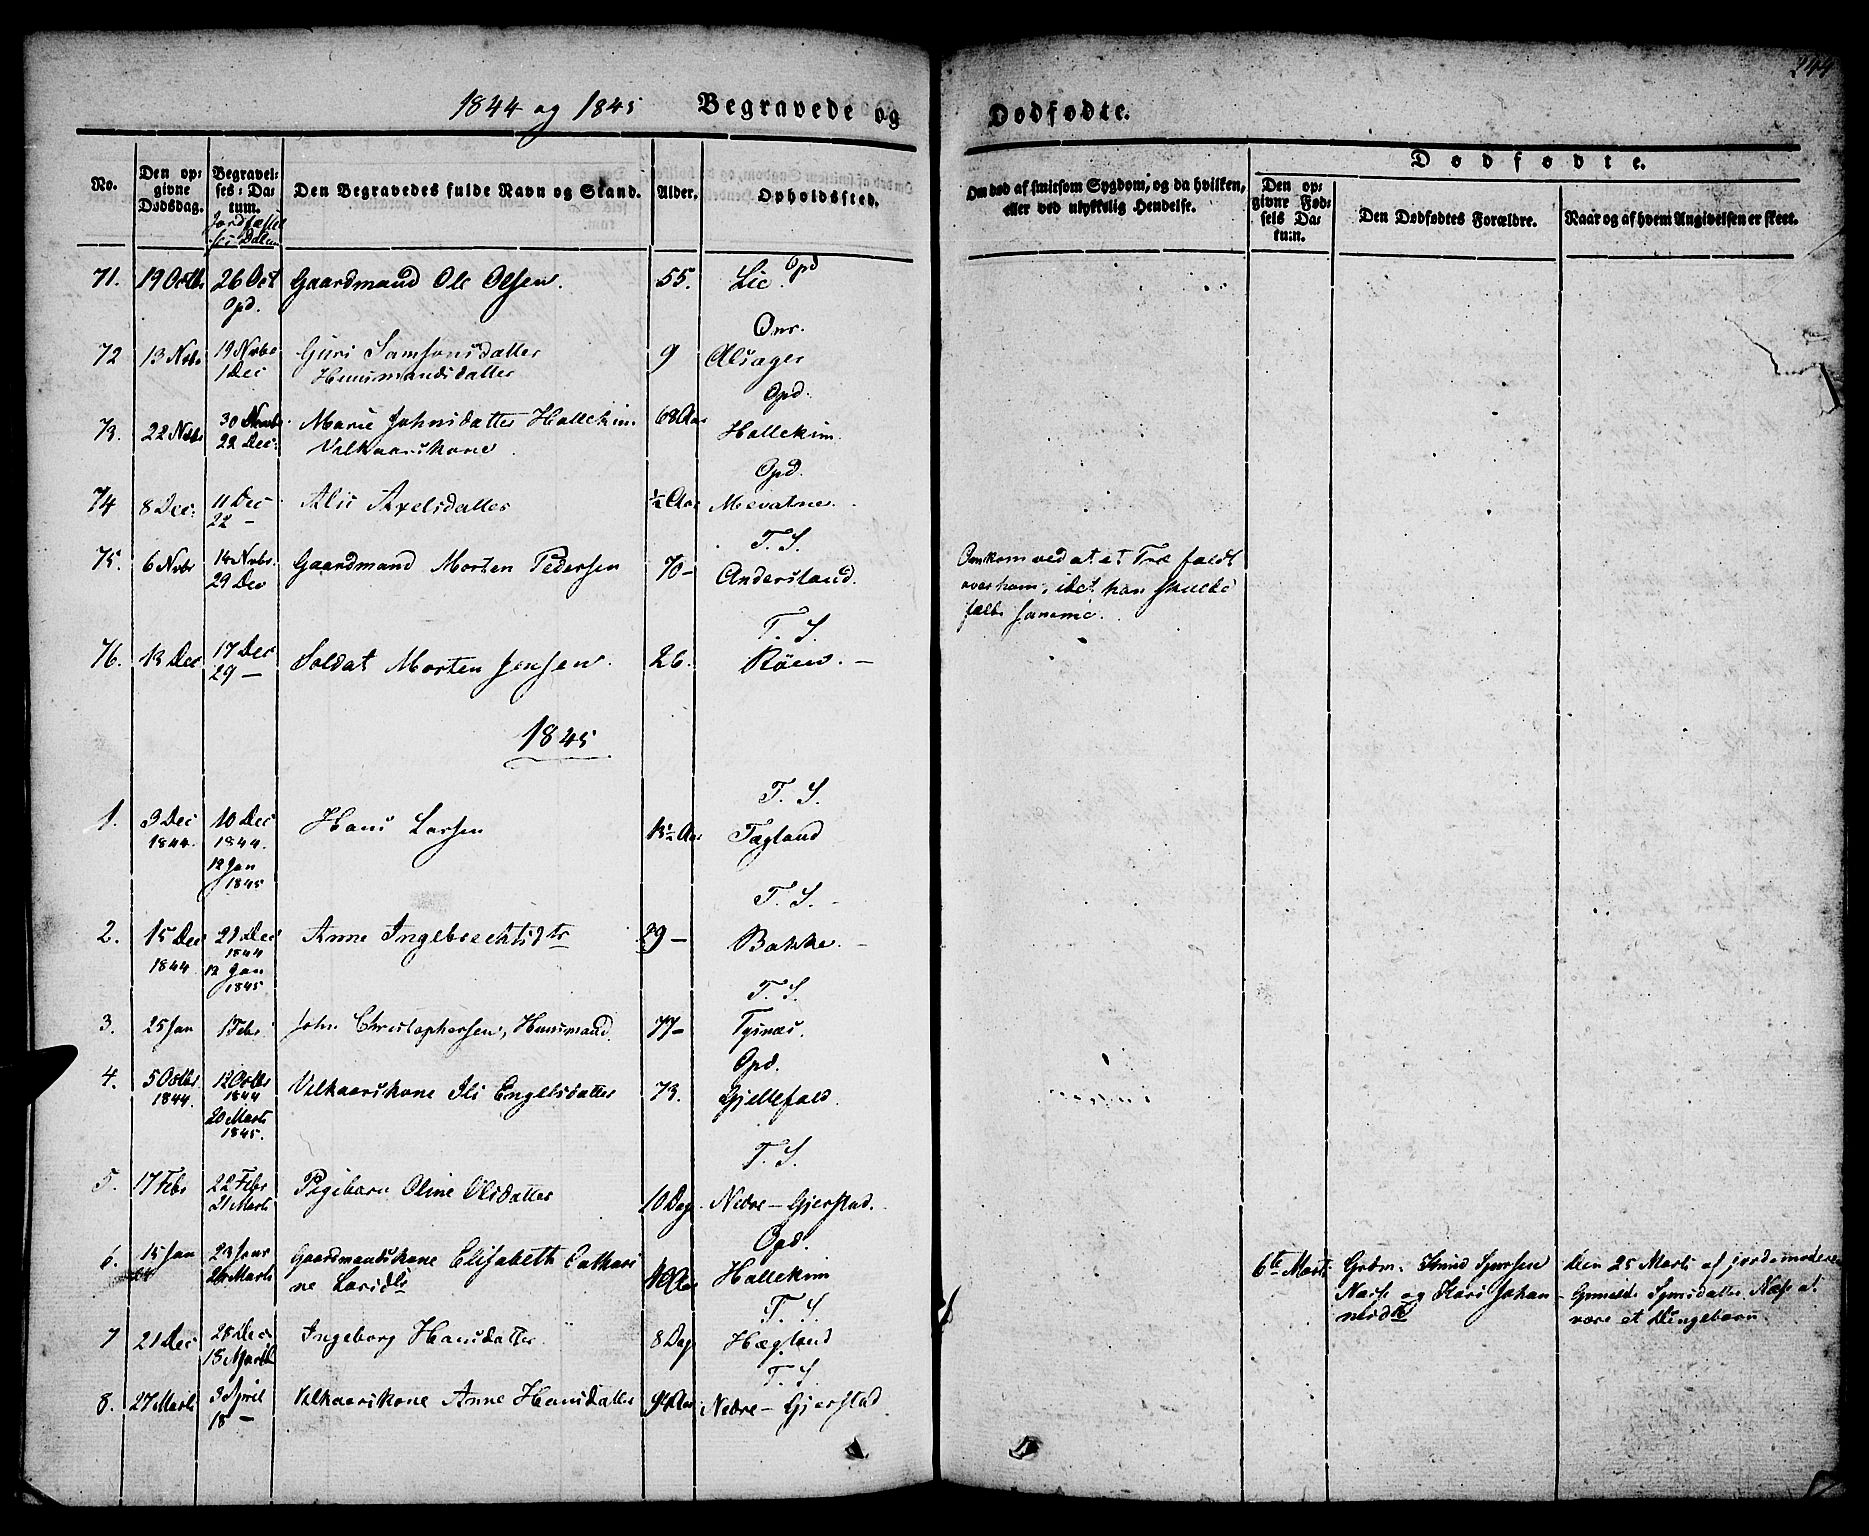 244
1844 og 1845 Begravede og Dødfødte.
No.
Den op-
givne
Dødsdag.
Begravel-
ses-Da-
tum.
Den Begravedes fulde Navn og Stand.
Alder.
Opholdssted.
Om død af smitsom Sygdom, og da hvilken,
eller ved ulykkelig Hendelse.
Dødfødte.
Den op-
givne Fød-
sels Da-
tum.
Den Dødfødtes Forældre.
Naar og af hvem Angivelsen er skeet.
71. 19 Octbr 26 Oct Gaardmand Ole Olsen. 55. Lie. Opd
Opd.
Onr.
72 13 Nvbr 19 Nvbr Guri Samsonsdatter 9 Alsager
1 Dec Huusmandsdatter
Opd.
73. 22 Nvbr 30 Novbr Marie Johnsdatter Hallekim. 68 Aar Hallekim.
22 Dec: Velkaarskone
Opd.
74 8 Dec: 11 Dec Alis Axelsdatter ½ Aar Mevatne.
22 —
T. S.
75. 6 Nvbr 14 Nvbr. Gaardmand Morten Pedersen 70 — Anderstand.
29 Dec
Omkom ved at et Træ faldt
over ham, idet han skulde
fælde samme.
T. S.
76. 13 Dec 17 Dec Soldat Morten Jensen. 26. Röen. —
29 —
1845
T. S.
1. 3 Dec 10 Dec Hans Larsen 13½ Aar Tagland
1844. 1844.
12 Jan
1845
T. S.
2. 15 Dec 21 Dec Anne Ingebrechtsdtr 29 — Bakke. —
1844 1844
12 Jan
1845
T. S.
3. 25 Jan 1 Febr John Christophersen, Huusmand. 77 — Tysnæs.
Opd.
4. 5 Octbr 12 Octbr Velkaarskone Ili Engelsdatter 73. Gjellefald.
1844. 1844
20 Marts
1845.
T. S.
5. 17 Febr 22 Febr Pigebarn Oline Olsdatter 10 Dag. Nedre-Gjerstad.
21 Marts
Opd.
6. 15 Jan 23 Janr Gaardmandskone Elisabeth Cathari
24 Marts ne Larsdtr Aar Hallekim
6te Marts Grdm. Knud Sjursen
Næss og Kari Johan
nesdtr
Den 25 Marts af jordemoderen
Gunild Næss at
være et Drengebarn
T. S.
7 21 Dec 28 Dec Ingeborg Hansdatter 8 Dag Hægland
15 Marts
T. S.
8. 27 Marts 3 April Velkaarskone Anne Hansdatter 94 Aar Nedre-Gjerstad
18 —